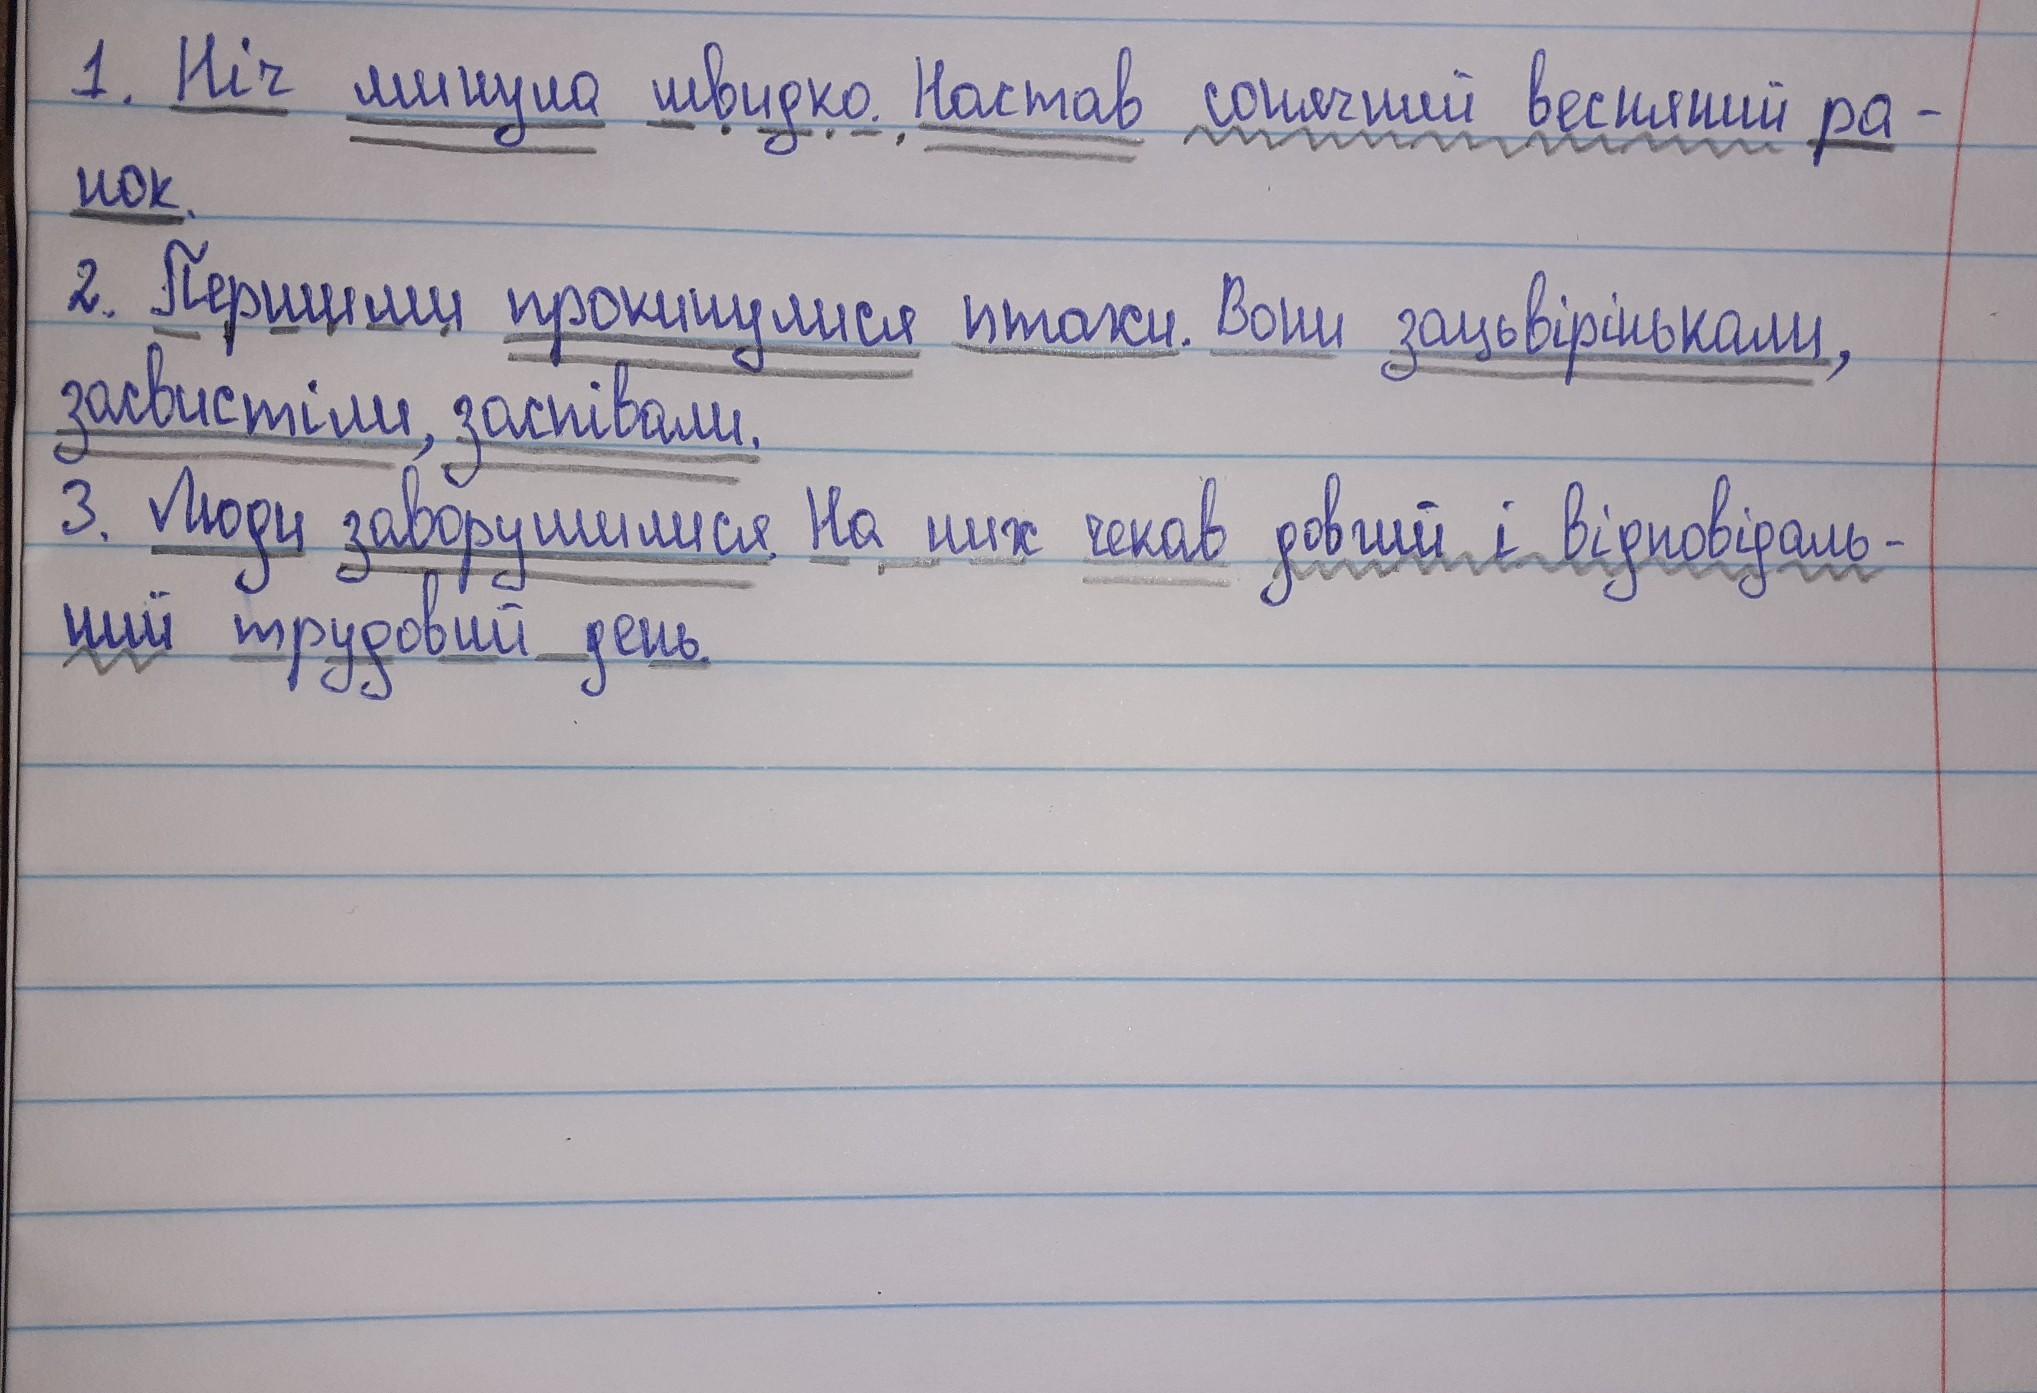 1. Ніч минула швидко. Настав сонячний весняний ра-
нок.
2. Першими прокинулися птахи. Вони зацьвірінькали,
засвистіли, заспівали.
3. Люди заворушилися. На них чекав довгий і відповідаль-
ний трудовий день.